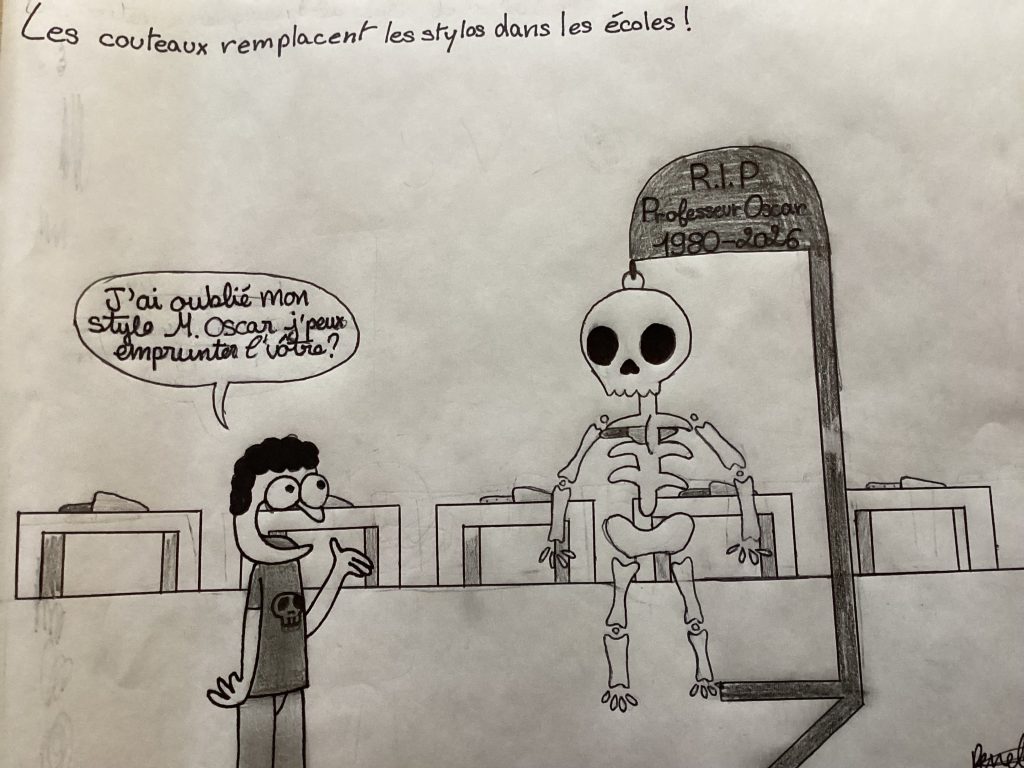 Les couteaux remplacent les stylos dans les écoles !
R.I.P
Professeur Oscar
1980-2026
J'ai oublié mon
stylo M. Oscar j'peux
emprunter l'vôtre?